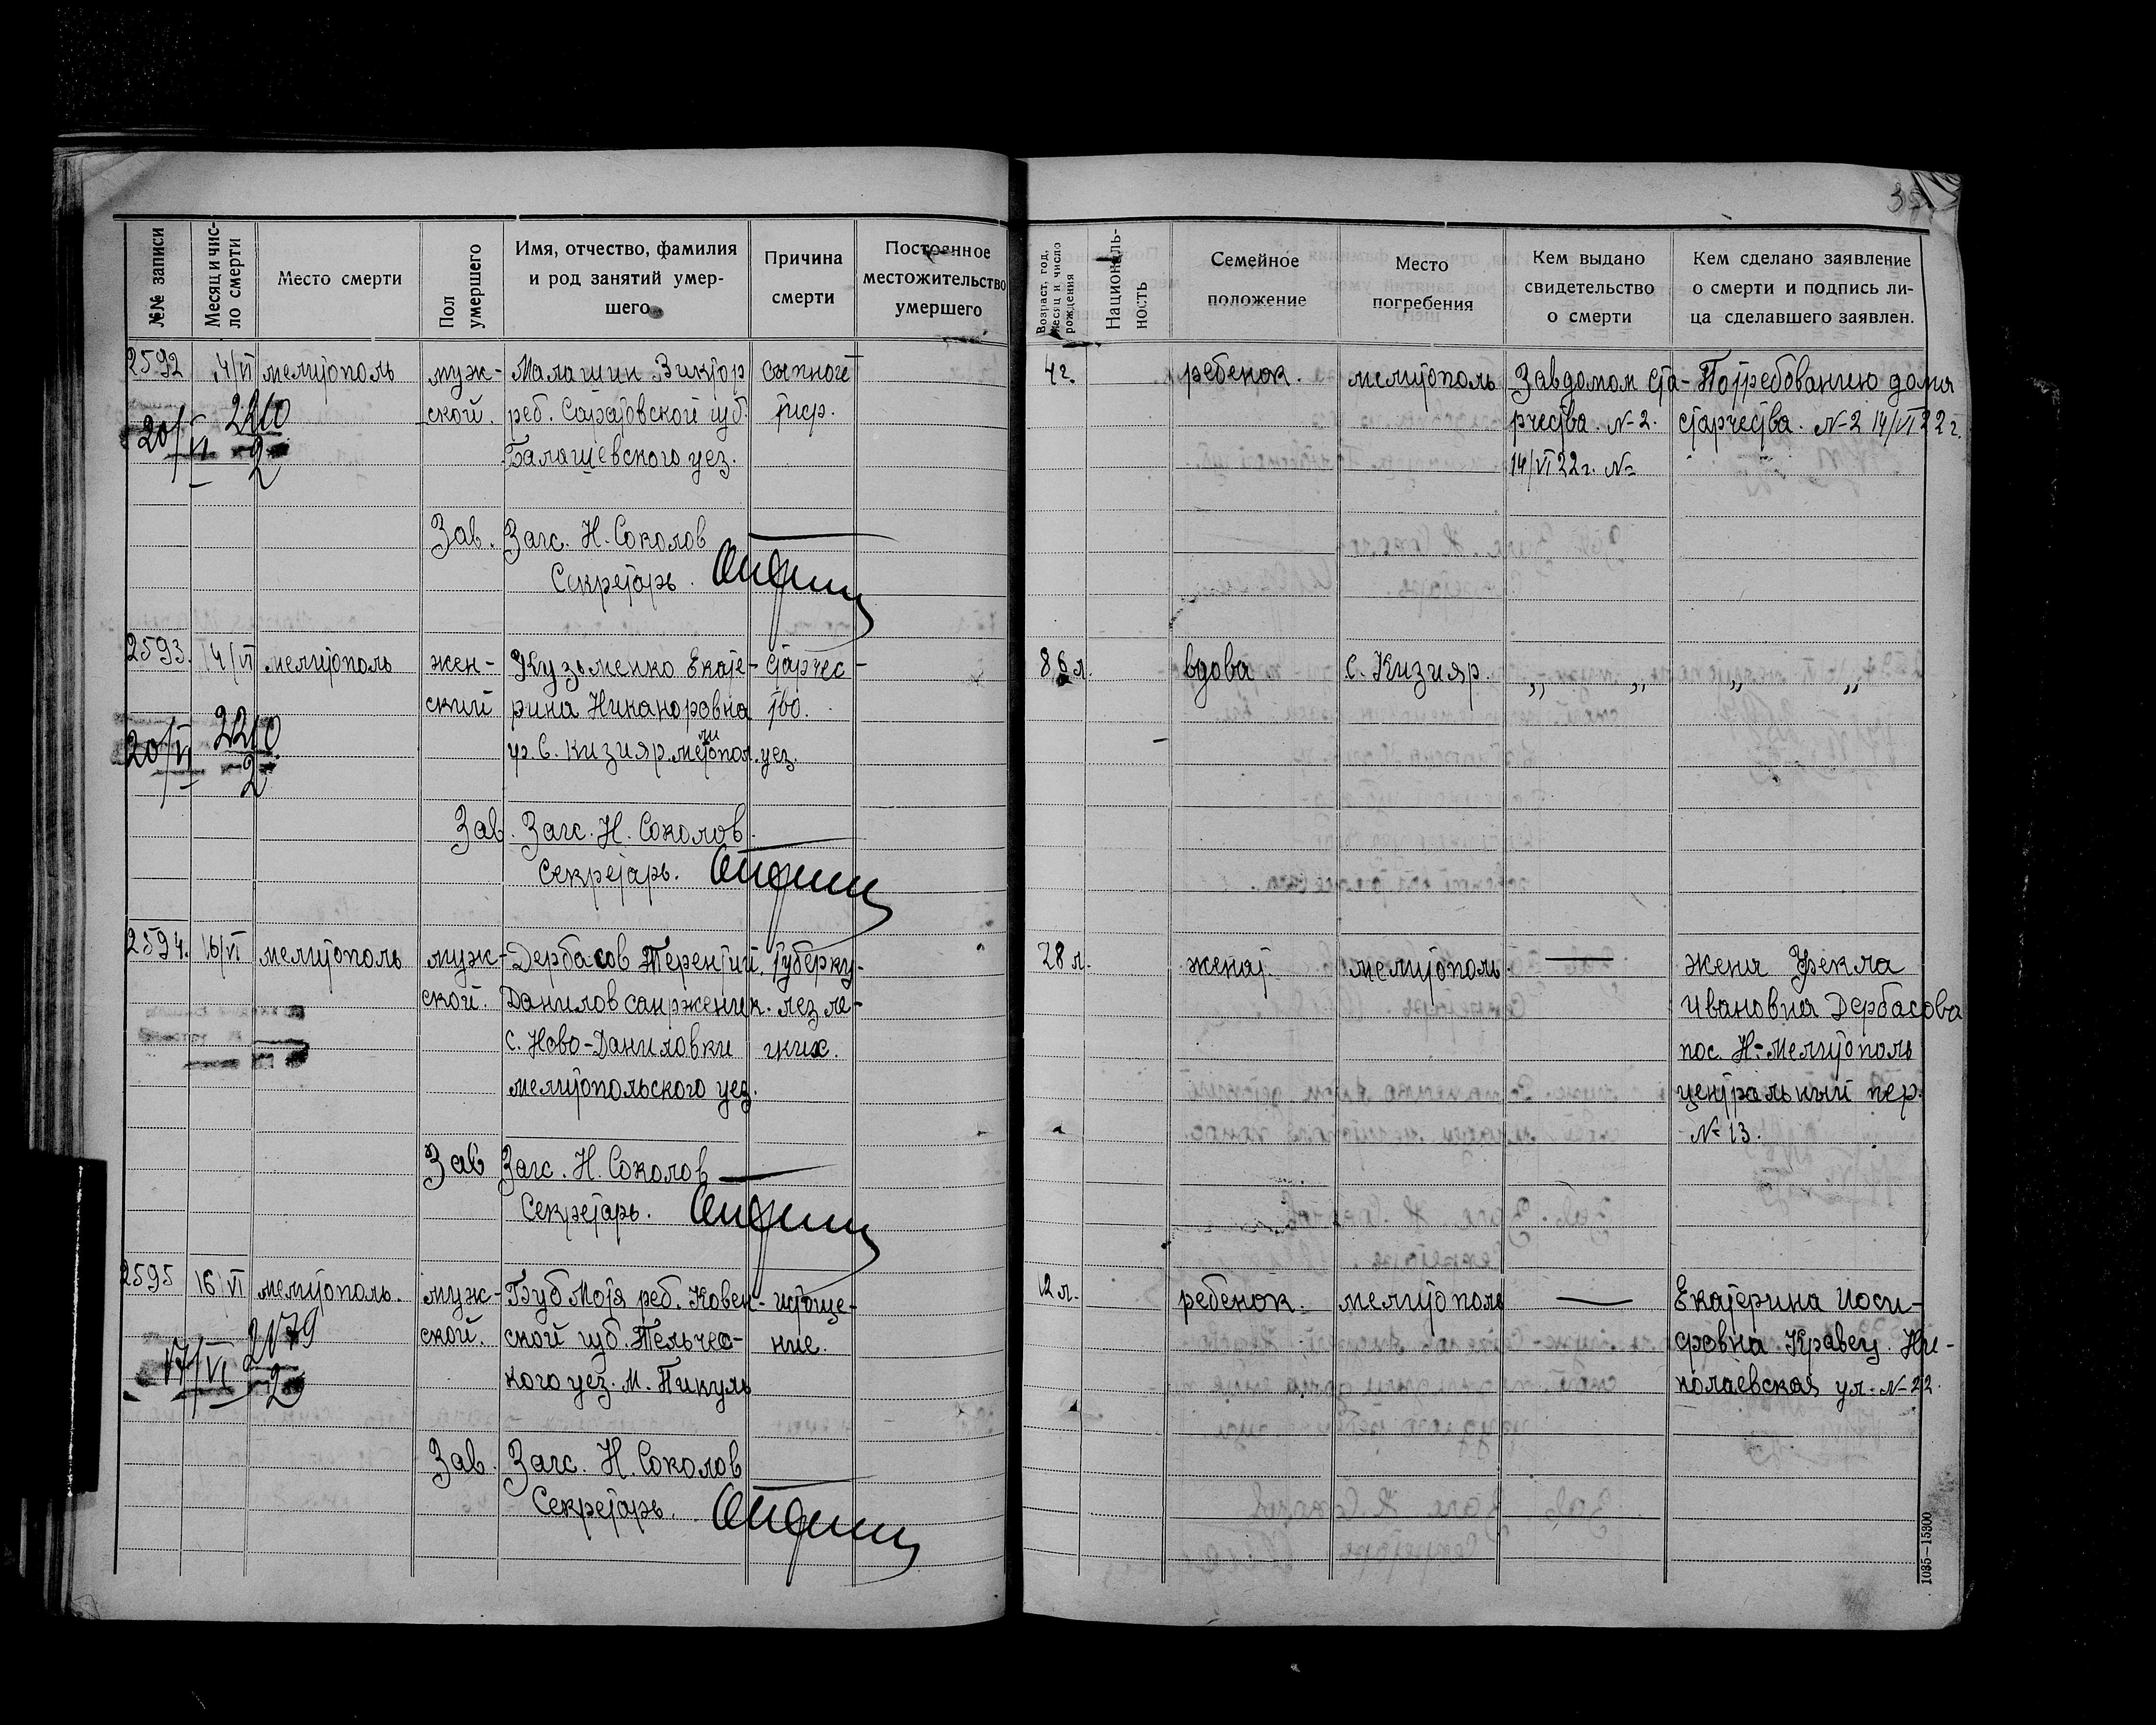 №№ записи
Месяц и чис-
ло смерти
Место смерти
Пол
умершего
Имя, отчество, фамилия
и род занятий умер-
шего
Причина
смерти
Постоянное
местожительство
умершего
Возраст, год,
месяц и число
рождения
Националь-
ность
Семейное
положение
Место
погребения
Кем выдано
свидетельство
о смерти
Кем сделано заявление
о смерти и подпись ли-
ца сделавшего заявлен.
2592
14/VI
мелитополь
муж-
ской.
Малашин Виктор
реб. Саратовской губ.
Балашевского уез.
сыпной
тиф.
20/VI 2210
2
4 г.
ребенок.
мелитополь
Завдомом ста-
рчества. №2.
14/VI 22г. №
По требованию дома
старчества. №2 14/VI 22г.
Зав. Загс. Н. Соколов
Секретарь.
2593.
14/VI
мелитополь
жен-
ский
Кузьменко Екате-
рина Никаноровна
гр. С. Кизияр. мелитопол. уез.
старчес-
тво.
20/VI 2210
2
86 л.
вдова
с. Кизияр.
„ „
„ „
Зав. Загс. Н. Соколов.
Секретарь.
2594.
16/VI
мелитополь
муж-
ской.
Дербасов Терентий
Данилов сапрженик.
с. Ново-Даниловки
мелитопольского уез.
туберку-
лез ле-
гких.
28 л.
женат.
мелитополь.
—
жена Фекла
Ивановна Дербасова
пос. Н-Мелитополь
центральный пер.
№ 13.
Зав Загс. Н. Соколов
Секретарь.
2595
16/VI
мелитополь.
муж-
ской.
Буб Мотя реб. Ковен-
ской губ. Тельчес-
кого уез. М. Пикуль
истоще-
ние.
17/VI 2179
2
12 л.
ребенок.
мелитополь
—
Екатерина Иоси-
фовна Кравец. Ни-
колаевская ул. №22.
Зав. Загс. Н. Соколов
Секретарь.
1035—15300